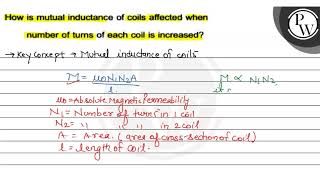 How is mutual inductance of coils affected when
number of turns of each coil is increased?
PW
→ Key concept → Mutual inductance of coils
M = μ₀N₁N₂A / l
M ∝ N₁N₂
μ₀ = Absolute Magnetic Permeability
N₁ = Number of turns in 1 coil
N₂ = " " " in 2 coil
A = Area. (area of cross-section of coil)
l = length of coil.